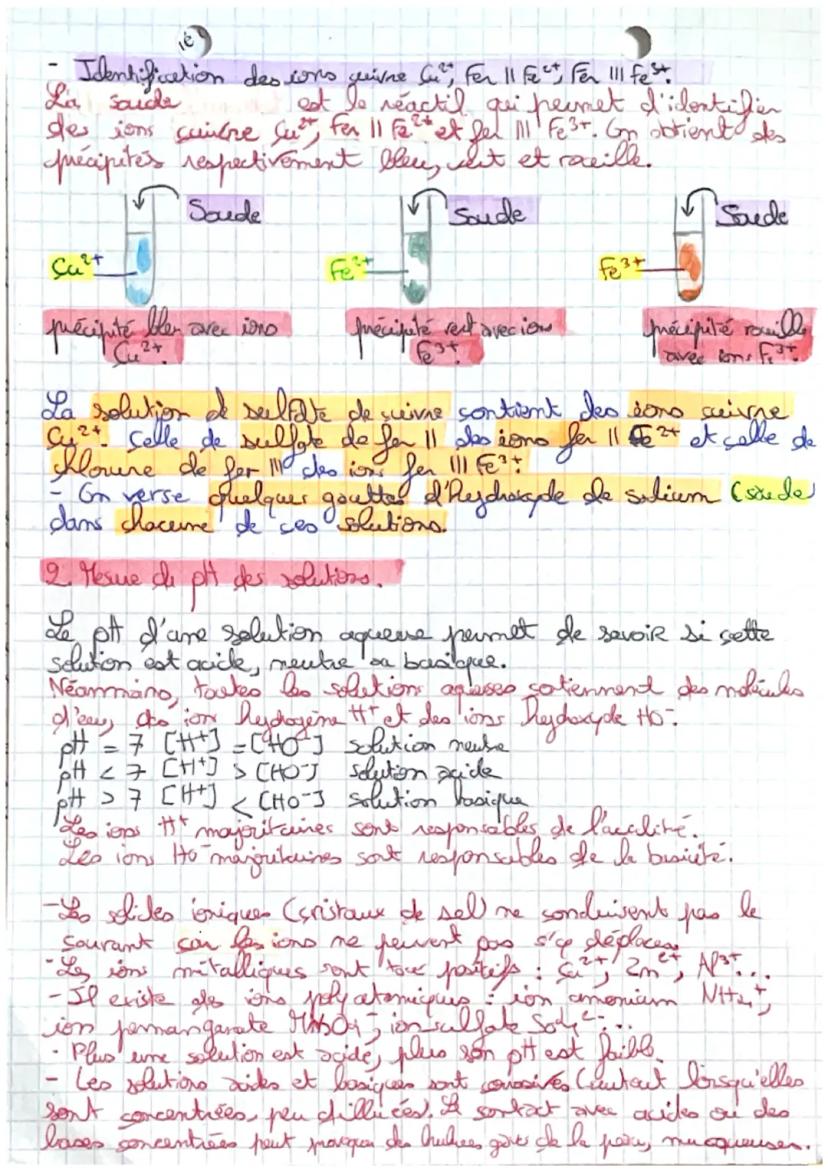 - Identification des ions cuivre Cu²⁺, Fer II Fe²⁺, Fer III Fe³⁺.
La soude est le réactif qui permet d'identifier
des ions cuivre Cu²⁺, Fer II Fe²⁺ et fer III Fe³⁺. On obtient des
précipités respectivement bleu, vert et rouille.
Soude Soude Soude
Cu²⁺ Fe²⁺ Fe³⁺
précipité bleu avec ions précipité vert avec ions précipité rouille
Cu²⁺. Fe³⁺. avec ions Fe³⁺.
La solution de sulfate de cuivre contient des ions cuivre
Cu²⁺. Celle de sulfate de fer II des ions fer II Fe²⁺ et celle de
chlorure de fer III des ions fer III Fe³⁺.
- On verse quelques gouttes d'Hydroxyde de sodium (soude)
dans chacune de ces solutions.
2. Mesure du pH des solutions.
Le pH d'une solution aqueuse permet de savoir si cette
solution est acide, neutre ou basique.
Néanmoins, toutes les solutions aqueuses contiennent des molécules
d'eau, des ions hydrogène H⁺ et des ions hydroxyde HO⁻.
pH = 7 [H⁺] = [HO⁻] solution neutre
pH < 7 [H⁺] > [HO⁻] solution acide
pH > 7 [H⁺] < [HO⁻] solution basique
Les ions H⁺ majoritaires sont responsables de l'acidité.
Les ions HO⁻ majoritaires sont responsables de la basicité.
- Les solides ioniques (cristaux de sel) ne conduisent pas le
courant car les ions ne peuvent pas s'y déplacer
- Les ions métalliques sont tous positifs : Cu²⁺, Zn²⁺, Al³⁺...
- Il existe des ions polyatomiques : ion amonium NH₄⁺,
ion permanganate MnO₄⁻, ion sulfate SO₄²⁻...
- Plus une solution est acide, plus son pH est faible.
- Les solutions acides et basiques sont corrosives (surtout lorsqu'elles
sont concentrées, peu diluées). Le contact avec acides ou des
bases concentrées peut provoquer des brulures de la peau, muqueuses.